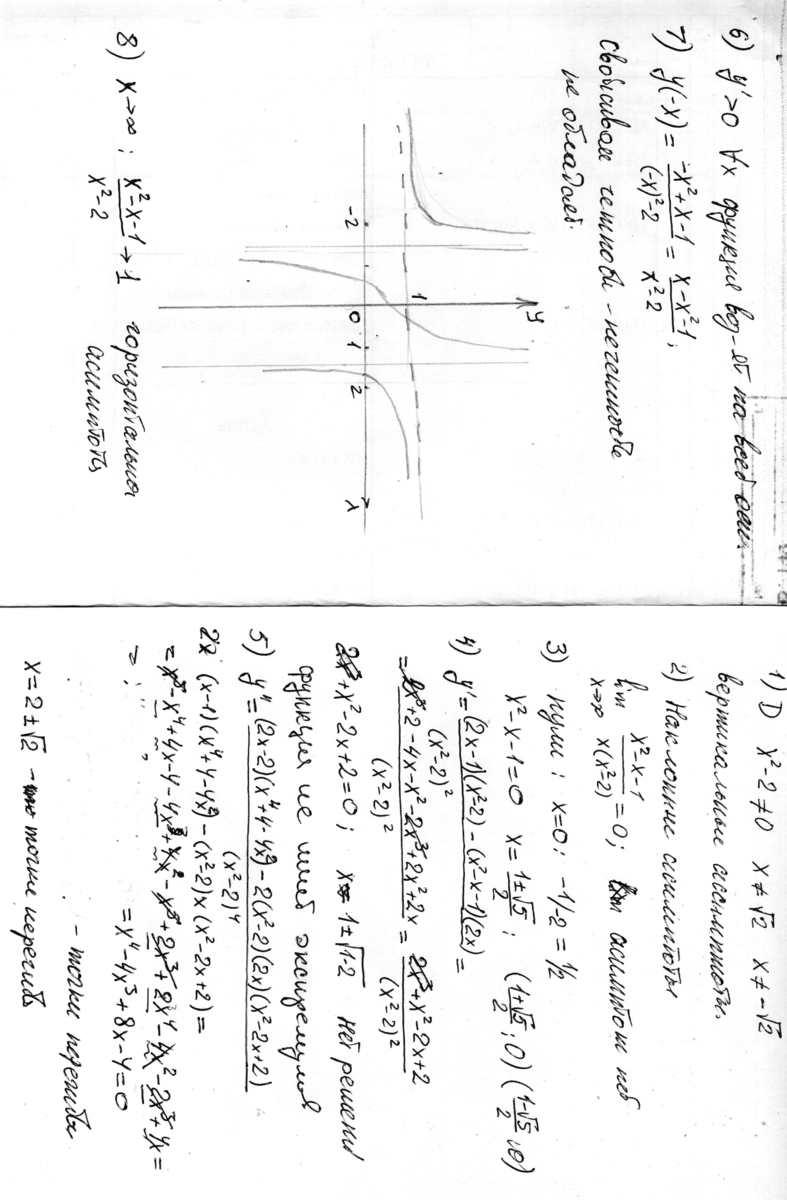 1) D x²-2≠0 x≠√2 x≠-√2
вертикальные асимптоты.
2) Наклонные асимптоты
lim x→∞ (x²-x-1)/(x(x²-2)) = 0; асимптот нет
3) нули: x=0: -1/-2 = 1/2
x²-x-1=0 x = (1±√5)/2; ((1+√5)/2; 0) ((1-√5)/2; 0)
4) y' = ((2x-1)(x²-2) - (x²-x-1)(2x))/(x²-2)² =
= (2x³+2-4x-x²-2x³+2x²+2x)/(x²-2)² = (2x³+x²-2x+2)/(x²-2)²
2x³+x²-2x+2=0; x = 1±√1-2 нет решений
функция не имеет экстремумов
5) y'' = ((2x-2)(x⁴+4-4x²) - 2(x²-2)(2x)(x²-2x+2))/(x²-2)⁴
2x (x-1)(x⁴+4-4x²) - (x²-2)x(x²-2x+2) =
= x⁵-x⁴+4x-4-4x³+4x²-x⁵+2x³+2x⁴-4x²-2x³+4x =
= x⁴-4x³+8x-4=0
- точки перегиба
x = 2±√2 - точки перегиба
6) y'>0 ∀x функция воз-ет на всей оси.
7) y(-x) = (-x²+x-1)/((-x)²-2) = (x-x²-1)/(x²-2);
свойствам четности - нечетности
не обладает.
y
1
-2 0 1 2 x
8) x→∞: (x²-x-1)/(x²-2) → 1 горизонтальная
асимптота